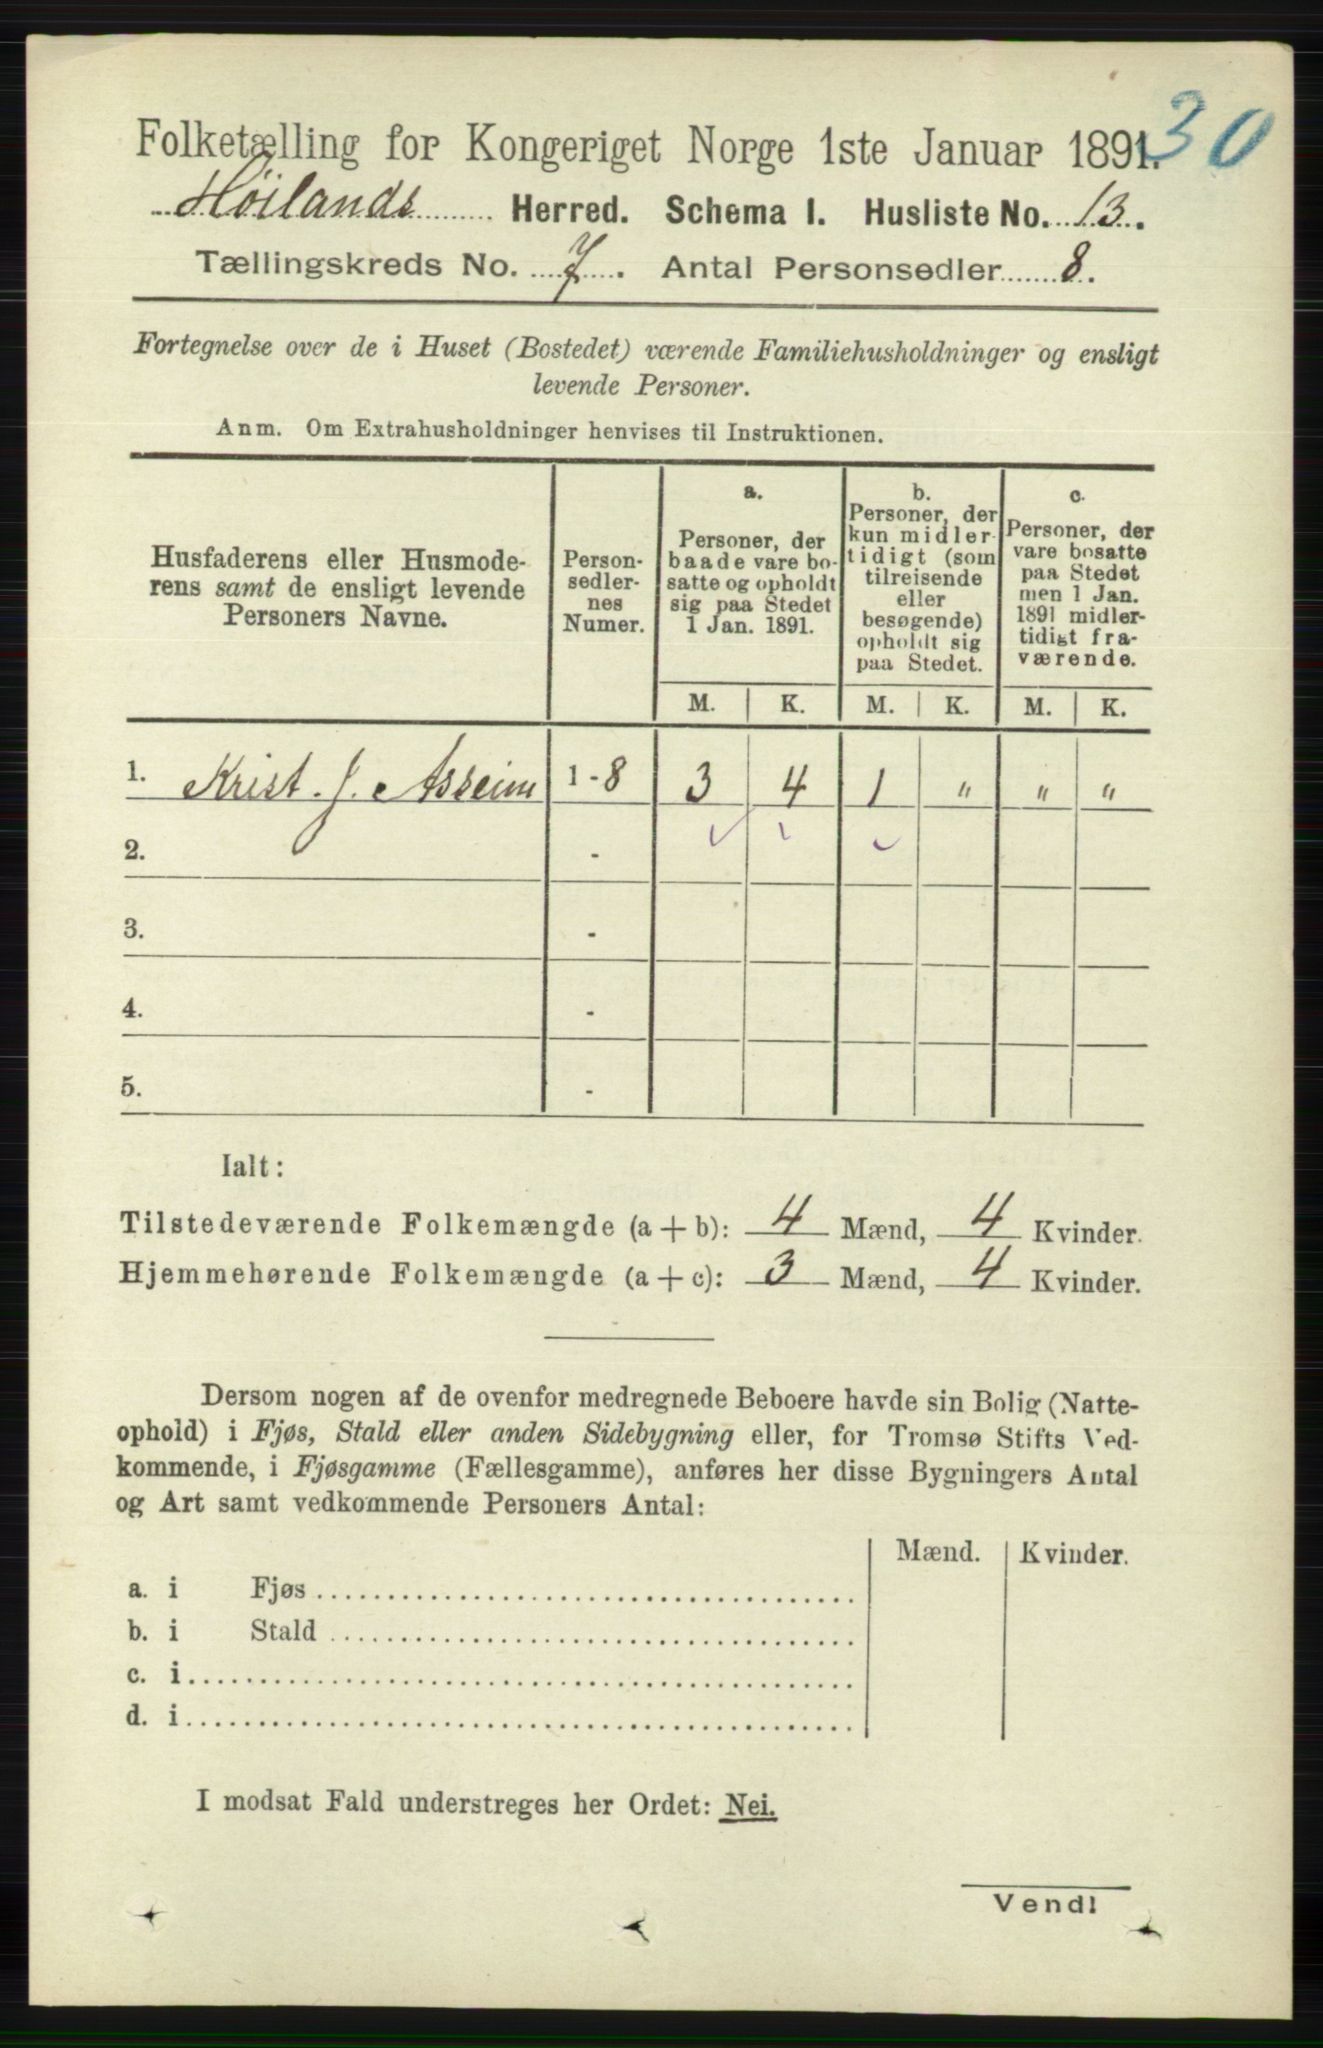 30
Folketælling for Kongeriget Norge 1ste Januar 1891.
Höilands Herred. Schema I. Husliste No. 13.
Tællingskreds No. 7. Antal Personsedler 8.
Fortegnelse over de i Huset (Bostedet) værende Familiehusholdninger og ensligt
levende Personer.
Anm. Om Extrahusholdninger henvises til Instruktionen.
Husfaderens eller Husmode-
rens samt de ensligt levende
Personers Navne.
Person-
sedler-
nes
Numer.
a.
Personer, der
baade vare bo-
satte og opholdt
sig paa Stedet
1 Jan. 1891.
b.
Personer, der
kun midler-
tidigt (som
tilreisende
eller
besøgende)
opholdt sig
paa Stedet.
c.
Personer, der
vare bosatte
paa Stedet
men 1 Jan.
1891 midler-
tidigt fra-
værende.
M. K. M. K. M. K.
1. Krist. J. Asseim 1-8 3 4 1 " " "
2. -
3. -
4. -
5. -
Ialt:
Tilstedeværende Folkemængde (a + b): 4 Mænd, 4 Kvinder.
Hjemmehørende Folkemængde (a + c): 3 Mænd, 4 Kvinder.
Dersom nogen af de ovenfor medregnede Beboere havde sin Bolig (Natte-
ophold) i Fjøs, Stald eller anden Sidebygning eller, for Tromsø Stifts Ved-
kommende, i Fjøsgamme (Fællesgamme), anføres her disse Bygningers Antal
og Art samt vedkommende Personers Antal:
Mænd. Kvinder.
a. i Fjøs
b. i Stald
c. i
d. i
I modsat Fald understreges her Ordet: Nei.
Vend!